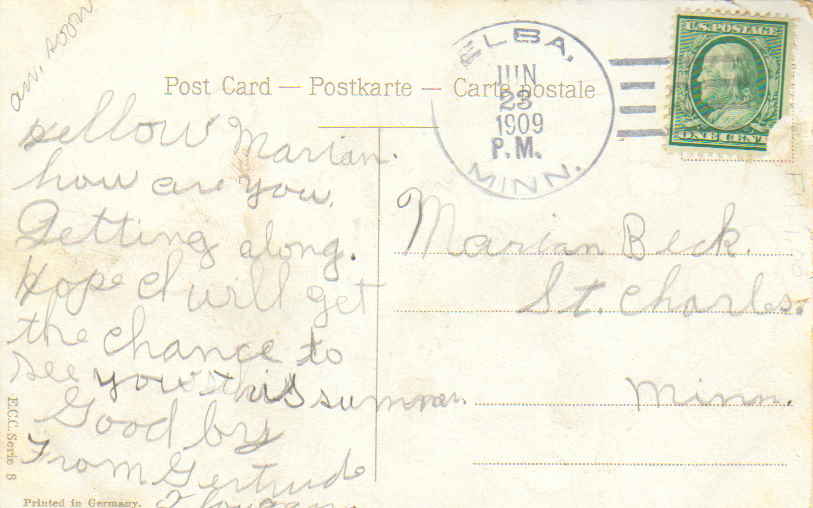 an. soon
Post Card — Postkarte — Carte postale
ELBA,
JUN
23
1909
P.M.
MINN.
U.S. POSTAGE
ONE CENT
Hellow Marian.
how are you.
Getting along.
Hope I will get
the chance to
see you this summer.
Good by
From Gertrude
Marian Beck.
St. Charles.
Minn.
E.C.C. Serie 8
Printed in Germany.